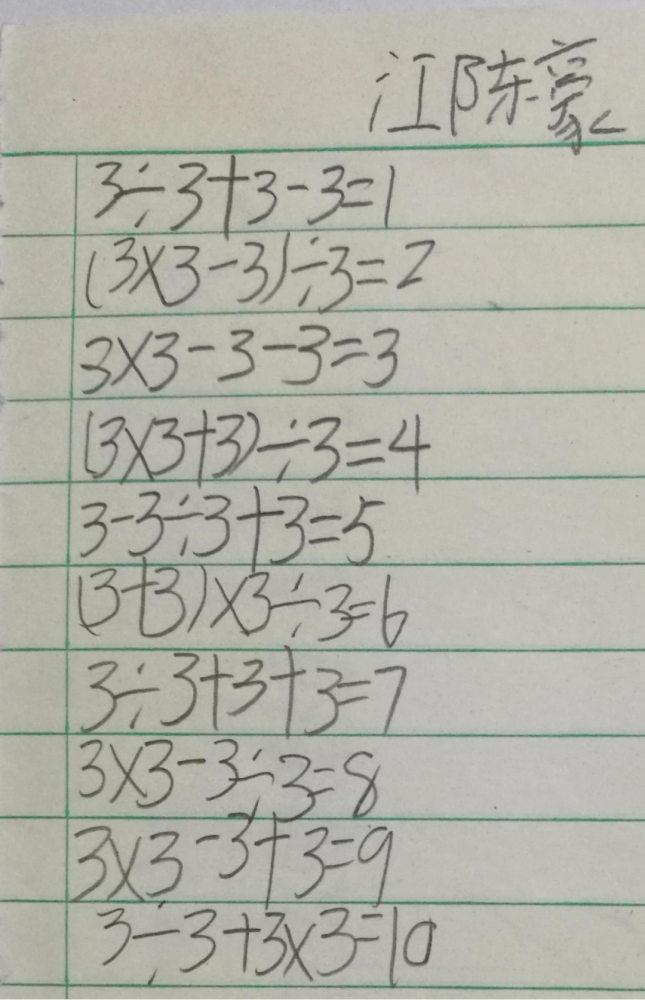 江陈豪
3÷3+3-3=1
(3×3-3)÷3=2
3×3-3-3=3
(3×3+3)÷3=4
3-3÷3+3=5
(3+3)×3÷3=6
3÷3+3+3=7
3×3-3÷3=8
3×3-3+3=9
3÷3+3×3=10